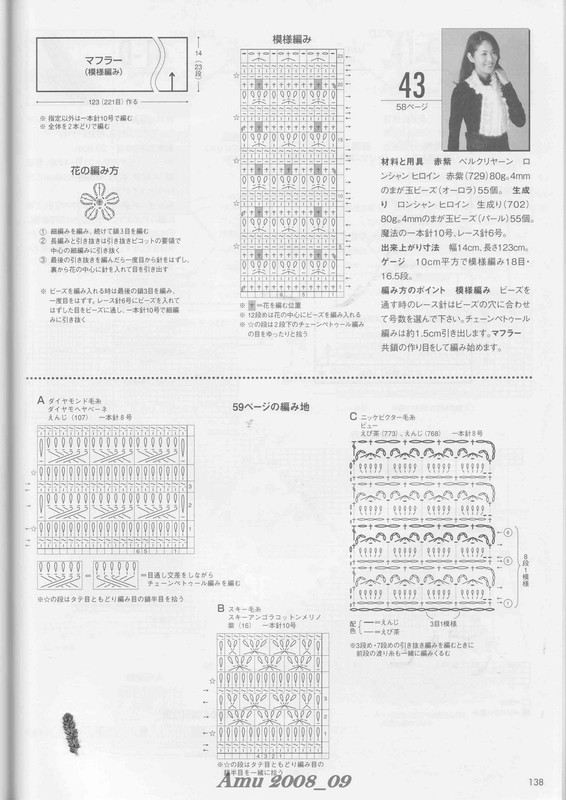 マフラー
(模様編み)
14
(23段)
123(221目)作る
※ 指定以外は一本針10号で編む
※ 全体を2本どりで編む
花の編み方
① 細編みを編み、続けて鎖3目を編む
② 長編みと引き抜きは引き抜きピコットの要領で
中心の細編みに引き抜く
③ 最後の引き抜きを編んだら一度目から針をはずし、
裏から花の中心に針を入れて目を引き出す
※ ビーズを編み入れる時は最後の鎖3目を編み、
一度目をはずす。レース針6号にビーズを入れて
はずした目をビーズに通し、一本針10号で細編
みに引き抜く
模様編み
※ =花を編む位置
※ 12段めは花の中心にビーズを編み入れる
※ ☆の段は2段下のチェーンペトゥール編み
の目をゆったりと拾う
43
58ページ
材料と用具 赤紫 ベルクリヤーン ロ
ンシャン ヒロイン 赤紫(729)80g。4mm
のまが玉ビーズ(オーロラ)55個。 生成
り ロンシャン ヒロイン 生成り(702)
80g。4mmのまが玉ビーズ(パール)55個。
魔法の一本針10号、レース針6号。
出来上がり寸法 幅14cm、長さ123cm。
ゲージ 10cm平方で模様編み18目・
16.5段。
編み方のポイント 模様編み ビーズを
通す時のレース針はビーズの穴に合わせ
て号数を選んで下さい。チェーンペトゥール
編みは約1.5cm引き出します。マフラー
共鎖の作り目をして編み始めます。
59ページの編み地
A ダイヤモンド毛糸
ダイヤモヘヤベーネ
えんじ(107) 一本針8号
☆
☆
3
2
1
6 5 1
=目通し交差をしながら
チェーンペトゥール編みを編む
※☆の段はタテ目ともどり編み目の鎖半目を拾う
B スキー毛糸
スキーアンゴラコットンメリノ
紫(16) 一本針10号
☆
☆
3
2
1
4 3 2 1
※☆の段はタテ目ともどり編み目の
鎖半目を一緒に拾う
C ニッケビクター毛糸
ビュー
えび茶(773)、えんじ(768) 一本針8号
⑧
⑤
①
8段1模様
3目1模様
配色
=えんじ
=えび茶
※3段め・7段めの引き抜き編みを編むときに
前段の渡り糸も一緒に編みくるむ
138
Amu 2008_09